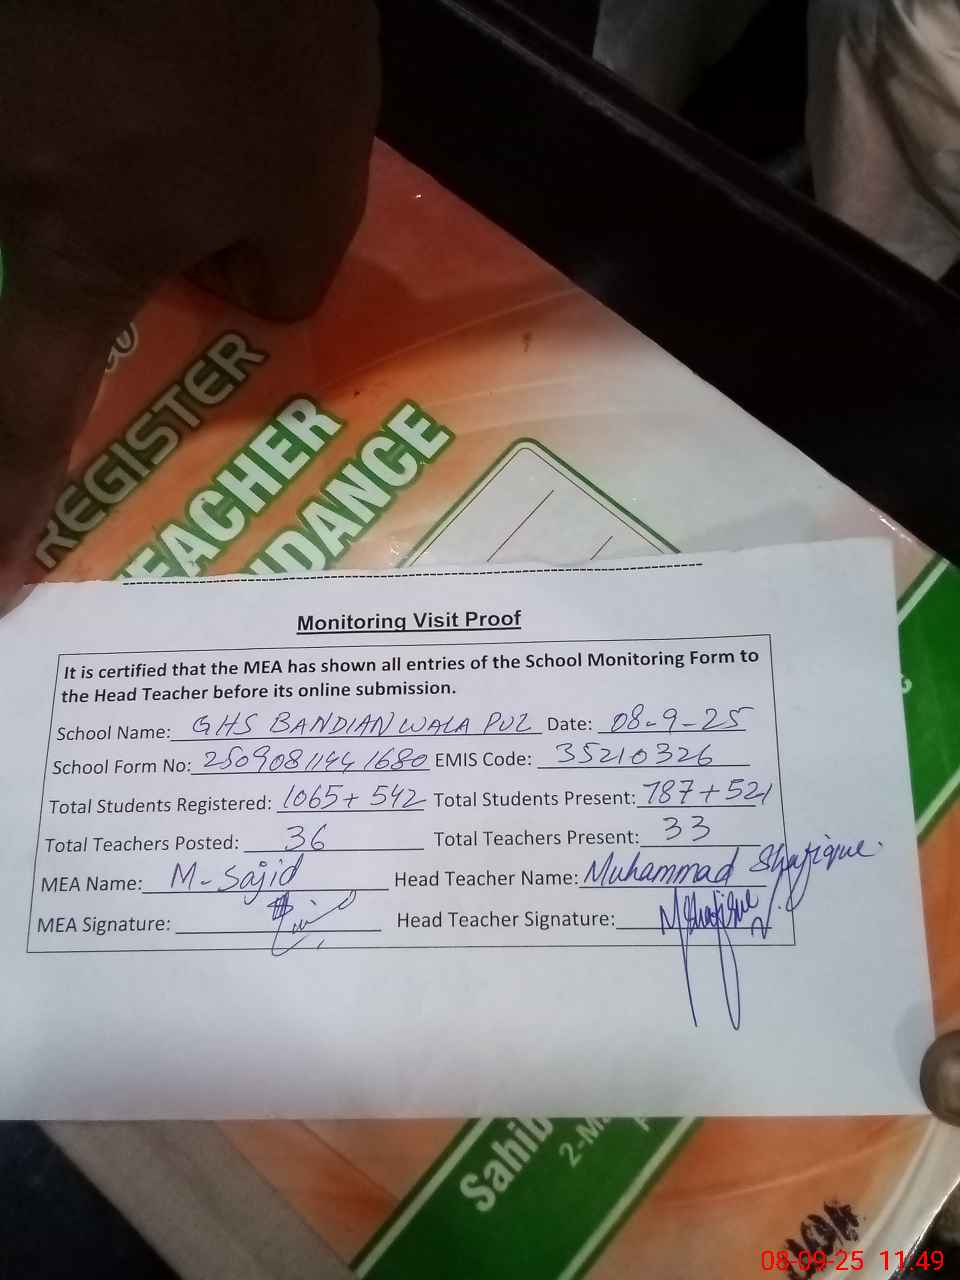 REGISTER
EACHER
NDANCE
Monitoring Visit Proof
It is certified that the MEA has shown all entries of the School Monitoring Form to
the Head Teacher before its online submission.
School Name: GHS BANDIANWALA PUL Date: 08-9-25
School Form No: 25090811441680 EMIS Code: 35210326
Total Students Registered: 1065+542 Total Students Present: 787+521
Total Teachers Posted: 36 Total Teachers Present: 33
MEA Name: M-Sajid Head Teacher Name: Muhammad Shafique.
MEA Signature: Head Teacher Signature: MShafique
Sahib
2-M
08-09-25 11:49